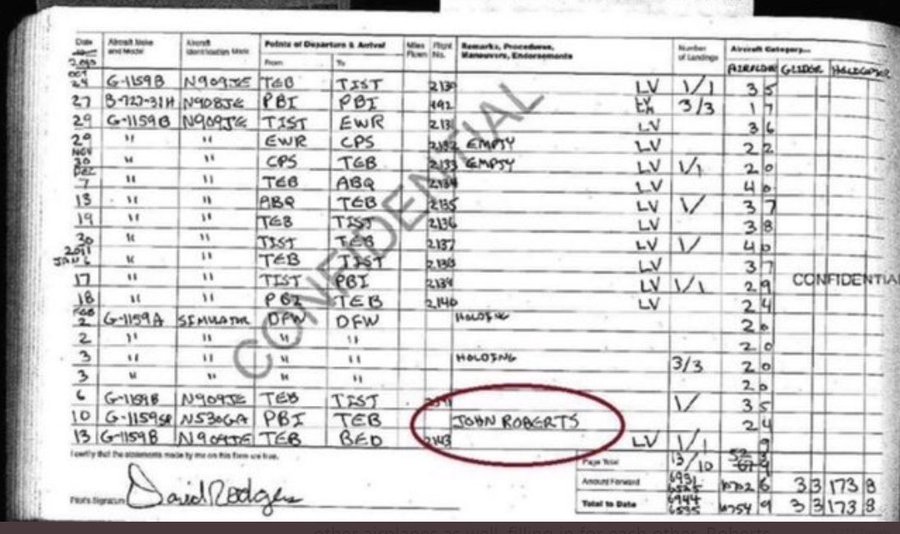 Date Aircraft Make and Model Aircraft Identification Mark Points of Departure & Arrival Miles Flown Flight No. Remarks, Procedures, Maneuvers, Endorsements Number of Landings Aircraft Category...
2010 From To AIRPLANE GLIDER
OCT 24 G-1159B N909JE TEB TIST 2130 LV 1/1 3 5
27 B-727-31H N908JE PBI PBI 492 3/3 1 7
29 G-1159B N909JE TIST EWR 2131 LV 3 6
29 " " EWR CPS 2132 EMPTY LV 2 2
NOV 30 " " CPS TEB 2133 EMPTY LV 1/1 2 0
DEC 7 " " TEB ABQ 2134 LV 4 0
13 " " ABQ TEB 2135 LV 1/ 3 7
19 " " TEB TIST 2136 LV 3 8
30 " " TIST TEB 2137 LV 1/ 4 0
2011 JAN 6 " " TEB TIST 2138 LV 3 7
17 " " TIST PBI 2139 LV 1/1 2 9
18 " " PBI TEB 2140 LV 2 4
FEB 2 G-1159A SIMULATOR DFW DFW HOLDING 2 0
2 " " " " 2 0
3 " " " " HOLDING 3/3 2 0
3 " " " " 2 0
6 G-1159B N909JE TEB TIST 1/ 3 5
10 G-1159SP N530GA PBI TEB JOHN ROBERTS 2 4
13 G-1159B N909JE TEB BED 2143 LV 1/1 9
I certify that the statements made by me on this form are true.
Page Total 13/10
Amount Forward 6931 6 33 173 8
Pilot's Signature David Rodgers Total to Date 6944 6535 9 33 173 8
CONFIDENTIAL
CONFIDENTIAL